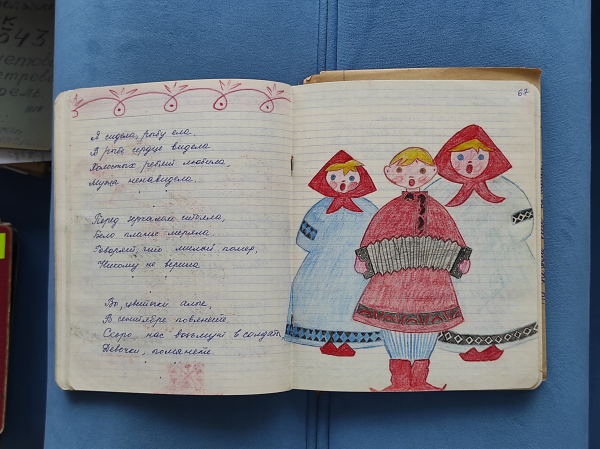 к
543
67
Я сидела, рыбу ела
В рыбе сердце видела
Холостых ребят любила,
Мужа ненавидела.
Перед зеркалом стояла,
Бело платье меряла.
Говорят, что милый помер,
Никому не верила
Вы, цветочки алые,
В сентябре повянете.
Скоро нас возьмут в солдаты
Девочки, поманете.